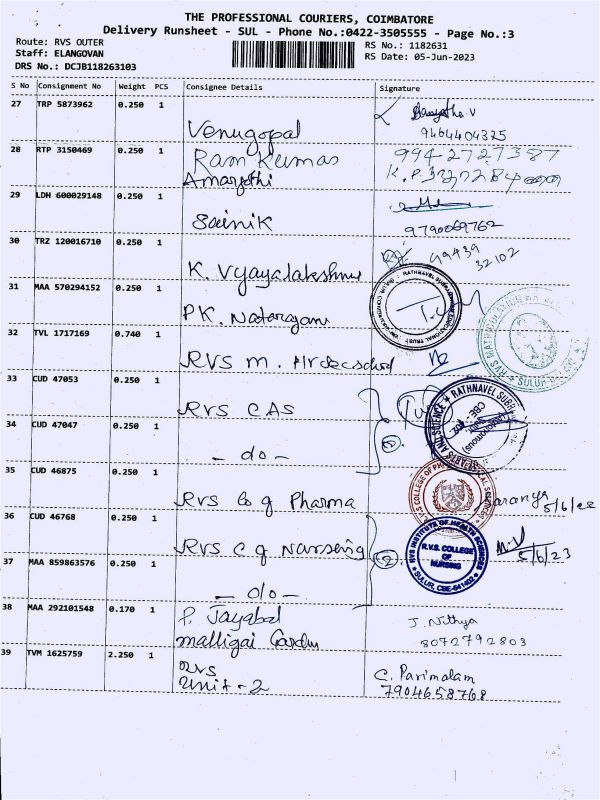 THE PROFESSIONAL COURIERS, COIMBATORE
Delivery Runsheet - SUL - Phone No.:0422-3505555 - Page No.:3
Route: RVS OUTER
RS No.: 1182631
Staff: ELANGOVAN
RS Date: 05-Jun-2023
DRS No.: DCJB118263103
S No Consignment No Weight PCS Consignee Details Signature
27 TRP 5873962 0.250 1 Venugopal
9464404375
28 RTP 3150469 0.250 1 Ram Kumar
9942727387
29 LDH 600029148 0.250 1 Sainik
9790069762
30 TRZ 120016710 0.250 1 K. Vyayalakshmi
99439
32102
31 MAA 570294152 0.250 1 PK. Natarajan
32 TVL 1717169 0.740 1 RVS M.
33 CUD 47053 0.250 1 RVS CAS
34 CUD 47047 0.250 1 - do -
35 CUD 46875 0.250 1 RVS Co g Pharma
Saranya
5/6/22
36 CUD 46768 0.250 1 RVS C g Narseng
R.V.S. COLLEGE OF NURSING
RVS INSTITUTE OF HEALTH SCIENCES
SULUR, CBE-641402
5/6/23
37 MAA 859863576 0.250 1 - do -
38 MAA 292101548 0.170 1 P. Jayabal
malligai Garden
J. Nithya
8072792803
39 TVM 1625759 2.250 1 RVS
Unit - 2
C. Parimalam
7904658768